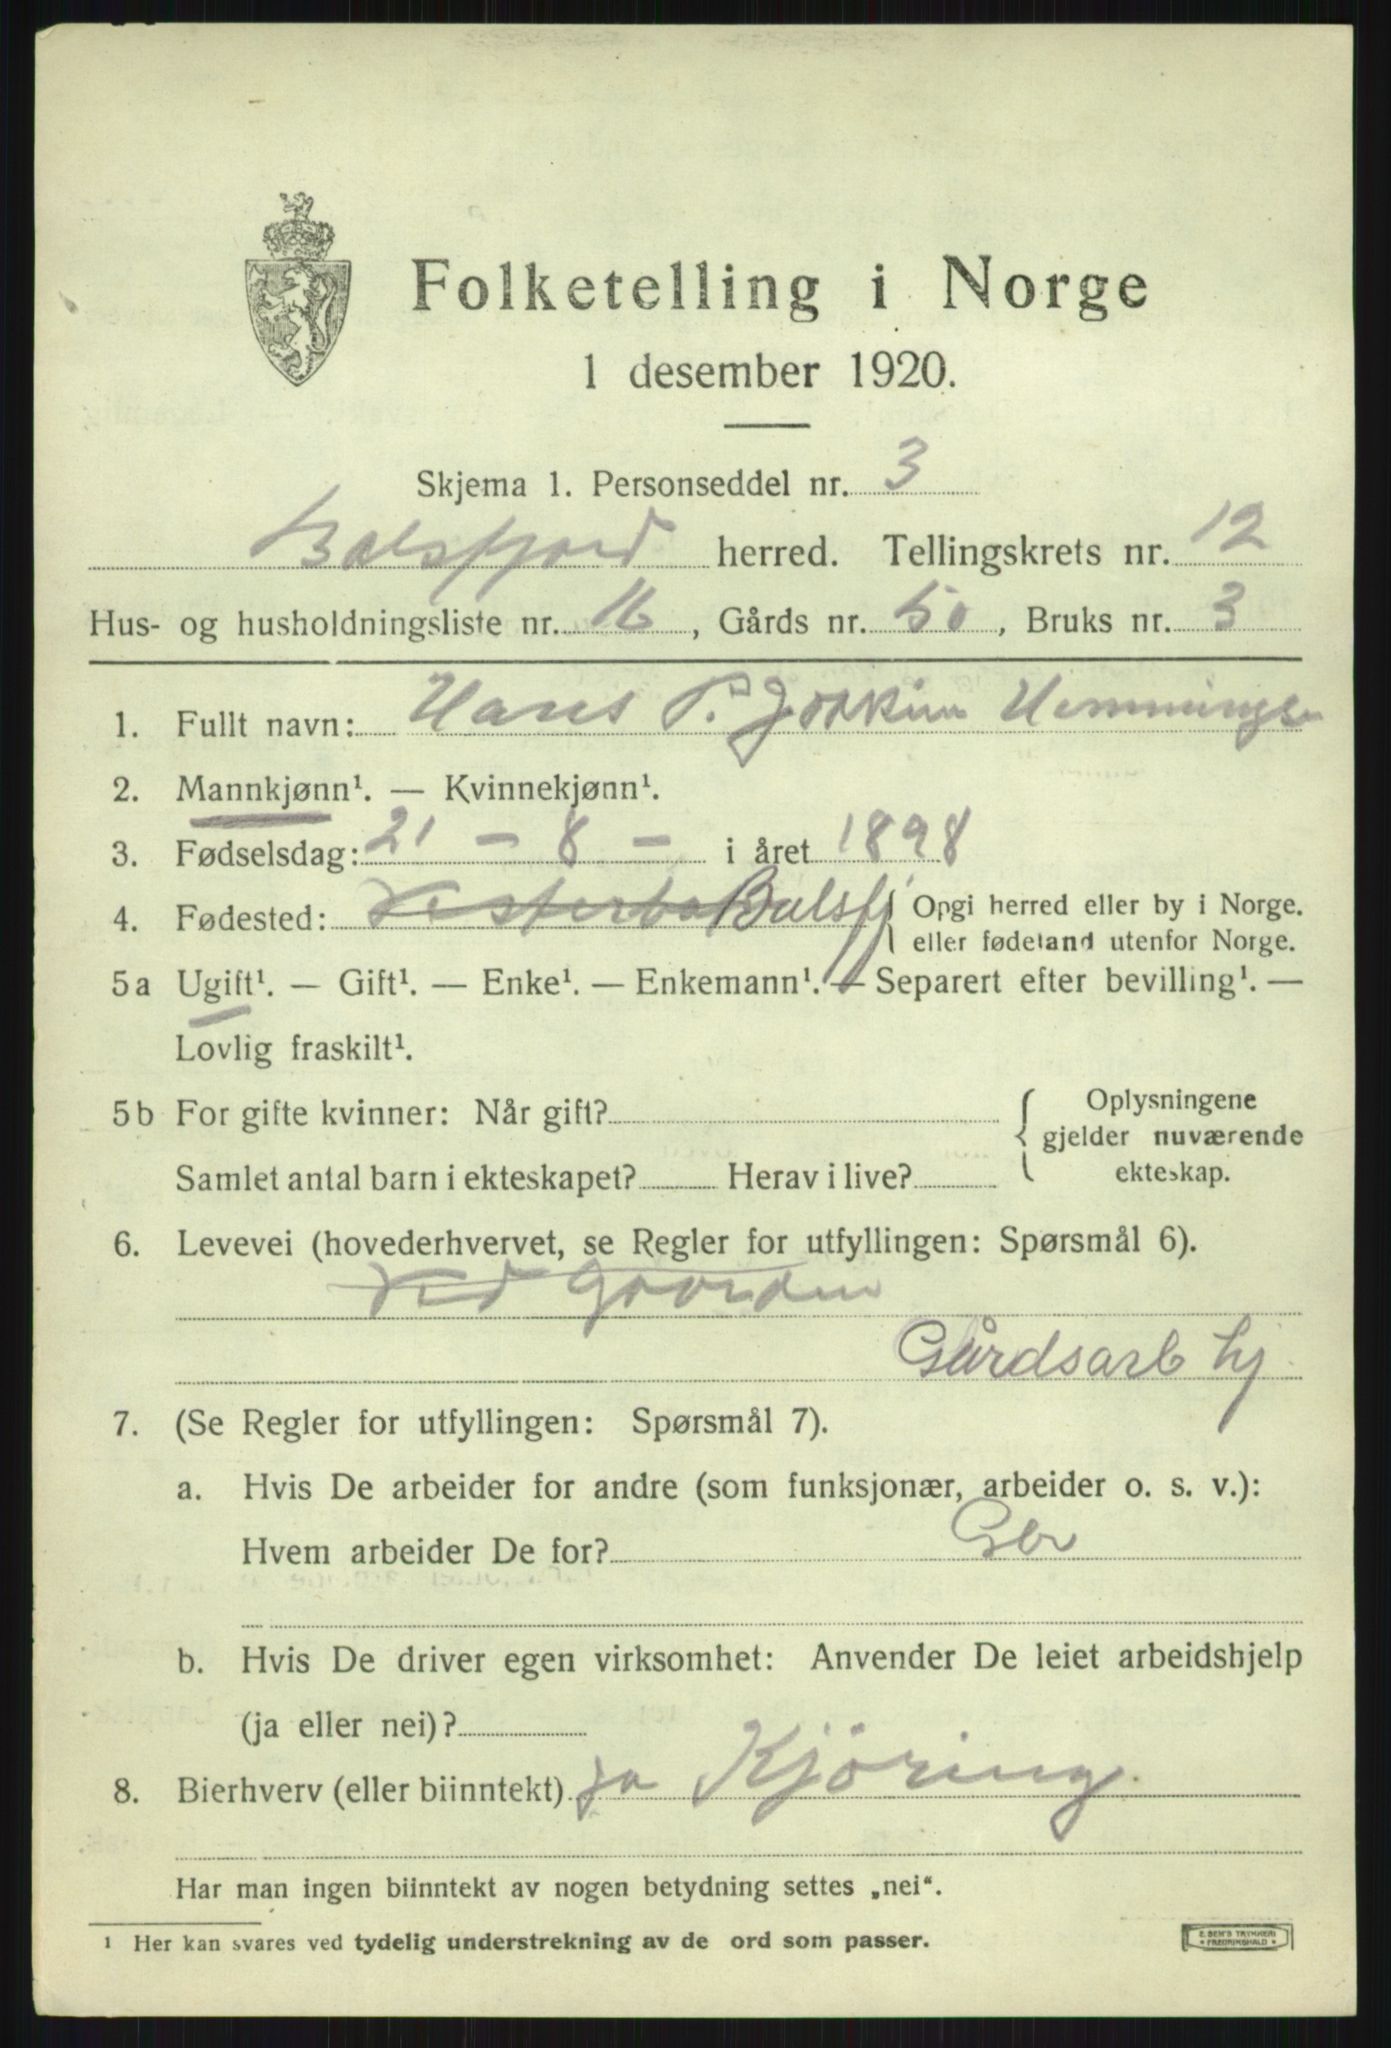 Folketelling i Norge
1 desember 1920.
Skjema 1. Personseddel nr. 3
Balsfjord herred. Tellingskrets nr. 12
Hus- og husholdningsliste nr. 16, Gårds nr. 50, Bruks nr. 3
1. Fullt navn: Hans P. Joakim Hemmingsen
2. Mannkjønn¹. — Kvinnekjønn¹.
3. Fødselsdag: 21 - 8 - i året 1898
4. Fødested: Balsfj. { Opgi herred eller by i Norge.
eller fødeland utenfor Norge.
5a Ugift¹. — Gift¹. — Enke¹. — Enkemann¹. — Separert efter bevilling¹. —
Lovlig fraskilt¹.
5b For gifte kvinner: Når gift? { Oplysningene
gjelder nuværende
Samlet antal barn i ekteskapet? Herav i live? ekteskap.
6. Levevei (hovederhvervet, se Regler for utfyllingen: Spørsmål 6).
Ved Gaarden
Gårdsarb hj.
7. (Se Regler for utfyllingen: Spørsmål 7).
a. Hvis De arbeider for andre (som funksjonær, arbeider o. s. v.):
Hvem arbeider De for? Gbr
b. Hvis De driver egen virksomhet: Anvender De leiet arbeidshjelp
(ja eller nei)?
8. Bierhverv (eller biinntekt) ja Kjöring.
Har man ingen biinntekt av nogen betydning settes „nei".
¹ Her kan svares ved tydelig understrekning av de ord som passer.
E. SEM'S TRYKKERI
FREDRIKSHALD